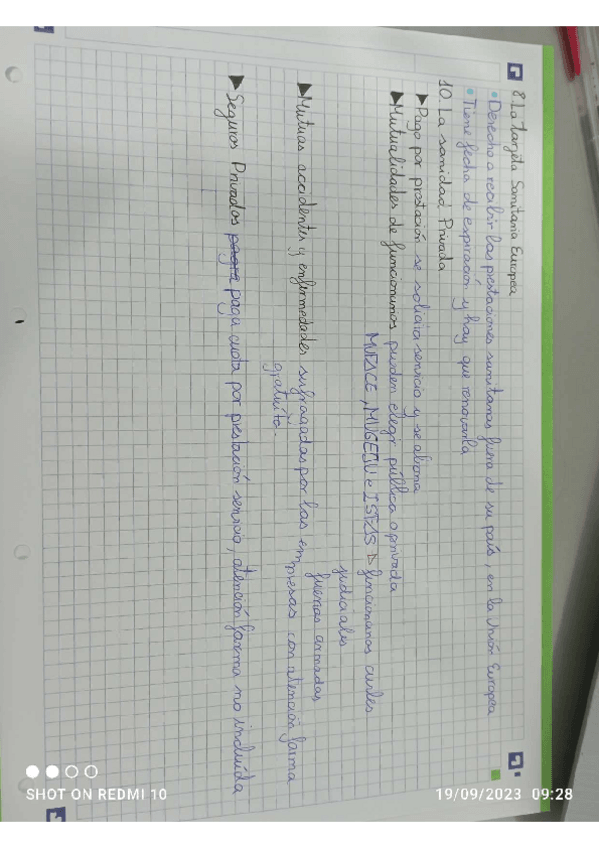 8. La tarjeta Sanitaria Europea
• Derecho a recibir las prestaciones sanitarias fuera de su país, en la Unión Europea
• Tiene fecha de expiración y hay que renovarla
10. La sanidad Privada
▶ Pago por prestación se solicita servicio y se abona
▶ Mutualidades de funcionarios pueden elegir pública o privada
MUFACE, MUGEJU e ISFAS ▷ funcionarios civiles
judiciales
fuerzas armadas
▶ Mutuas accidentes y enfermedades sufragadas por las empresas con atención farma
gratuita.
▶ Seguros Privados paga cuota por prestación servicio, atención farma no incluída
SHOT ON REDMI 10
19/09/2023 09:28